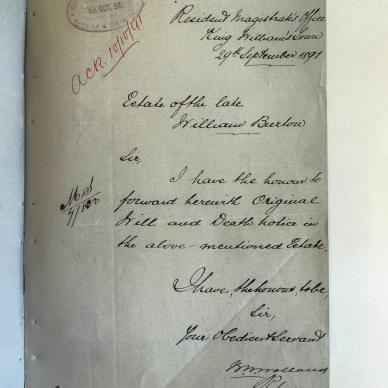 5th OCT. 91
ACK. 10/10/91
Resident Magistrate's Office
King William's Town
29th September 1891
Estate of the late
William Burton
Sir,
I have the honour to
forward herewith Original
Will and Death notice in
the above-mentioned Estate.
I have, the honour, to be,
Sir,
Your Obedient Servant